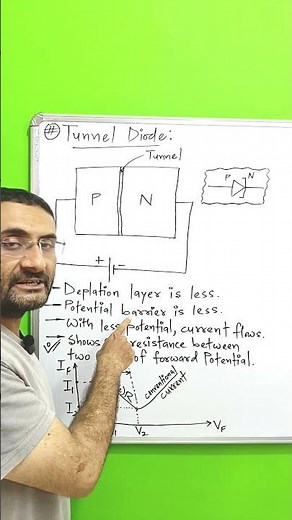 # Tunnel Diode:
Tunnel
P N
P N
+ -
- Deplation layer is less.
- Potential barrier is less.
- With less potential, current flows.
Shows resistance between
two of forward Potential.
IF
I1
conventional
current
V2 VF